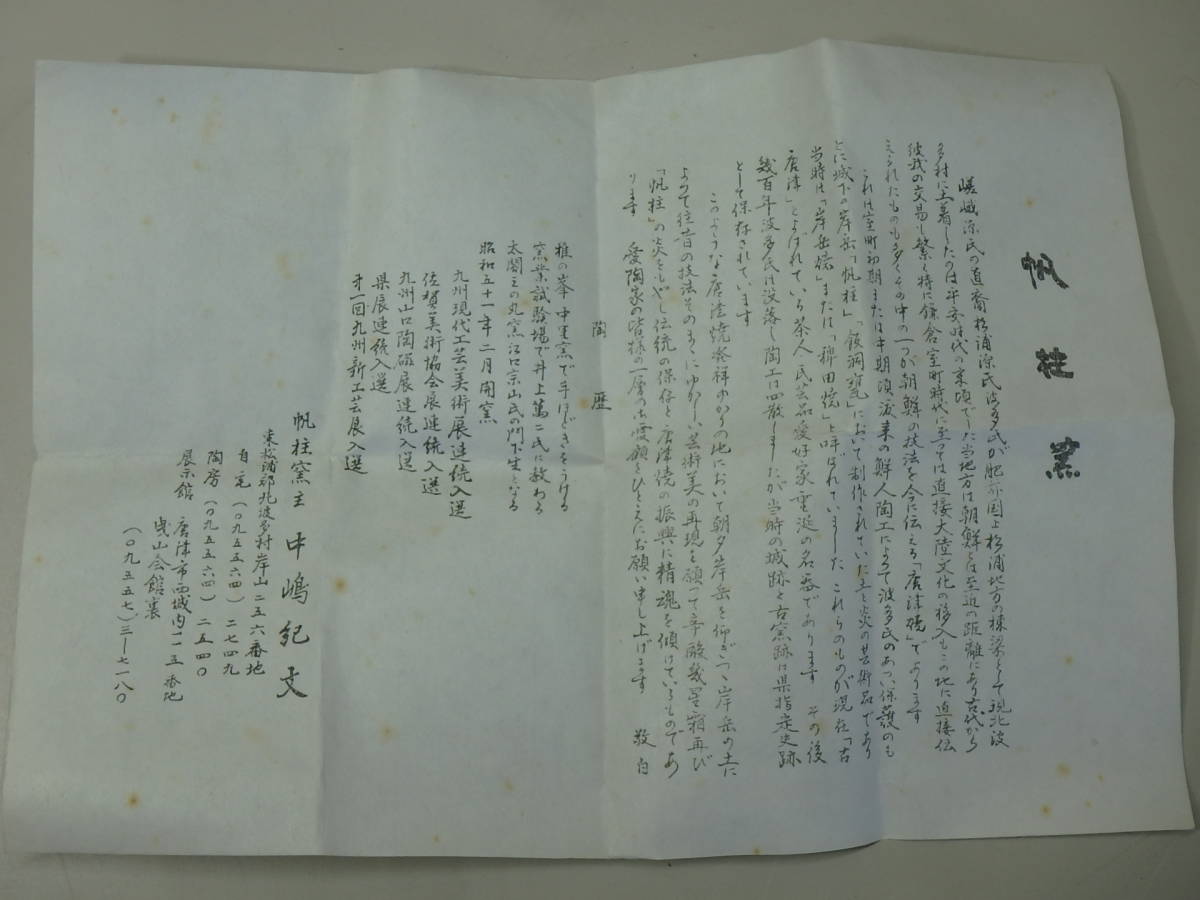 帆柱窯
嵯峨源氏の直裔松浦源氏波多氏が肥前国上松浦地方の棟梁として現北波
多村に土着したのは平安時代の末頃でした当地方は朝鮮とは至近の距離にあり古代から
彼我の交易も繁く特に鎌倉室町時代に至っては直接大陸文化の移入もこの地に直接伝
えられたものも多くその中の一つが朝鮮の技法を今に伝える「唐津焼」であります
これは室町初期または中期頃渡来の鮮人陶工によって波多氏のあつい保護のも
とに城下の岸岳「帆柱」「飯洞甕」において制作されていた土と炎の芸術品であり
当時は「岸岳焼」または「稗田焼」と呼ばれていました これらのものが現在「古
唐津」とよばれている茶人 民芸品愛好家 垂涎の名器であります その後
幾百年波多氏は没落し陶工は四散しましたが当時の城跡と古窯跡は県指定史跡
として保存されています
このような唐津焼発祥ゆかりの地において朝夕岸岳を仰ぎつつ岸岳の土に
よって往昔の技法そのままにゆかしい芸術美の再現を願って辛酸幾星霜再び
「帆柱」の炎をもやし伝統の保存と唐津焼の振興に精魂を傾けているものであ
ります 愛陶家の皆様の一層の御愛顧をひとえにお願い申し上げます 敬白
陶歴
椎の峯 中里窯で手ほどきをうける
窯業試験場で井上萬二氏に教わる
太閤三の丸窯 江口宗山氏の門下生となる
昭和五十一年二月開窯
九州現代工芸美術展連続入選
佐賀美術協会展連続入選
九州山口陶磁展連続入選
県展連続入選
才一回九州新工芸展入選
帆柱窯主 中嶋紀文
東松浦郡北波多村岸山二五六番地
自宅(〇九五五六四)二七四九
陶房(〇九五五六四)二五四〇
展示館 唐津市西城内一一五番地
曳山会館裏
(〇九五五七)三ー七一八〇